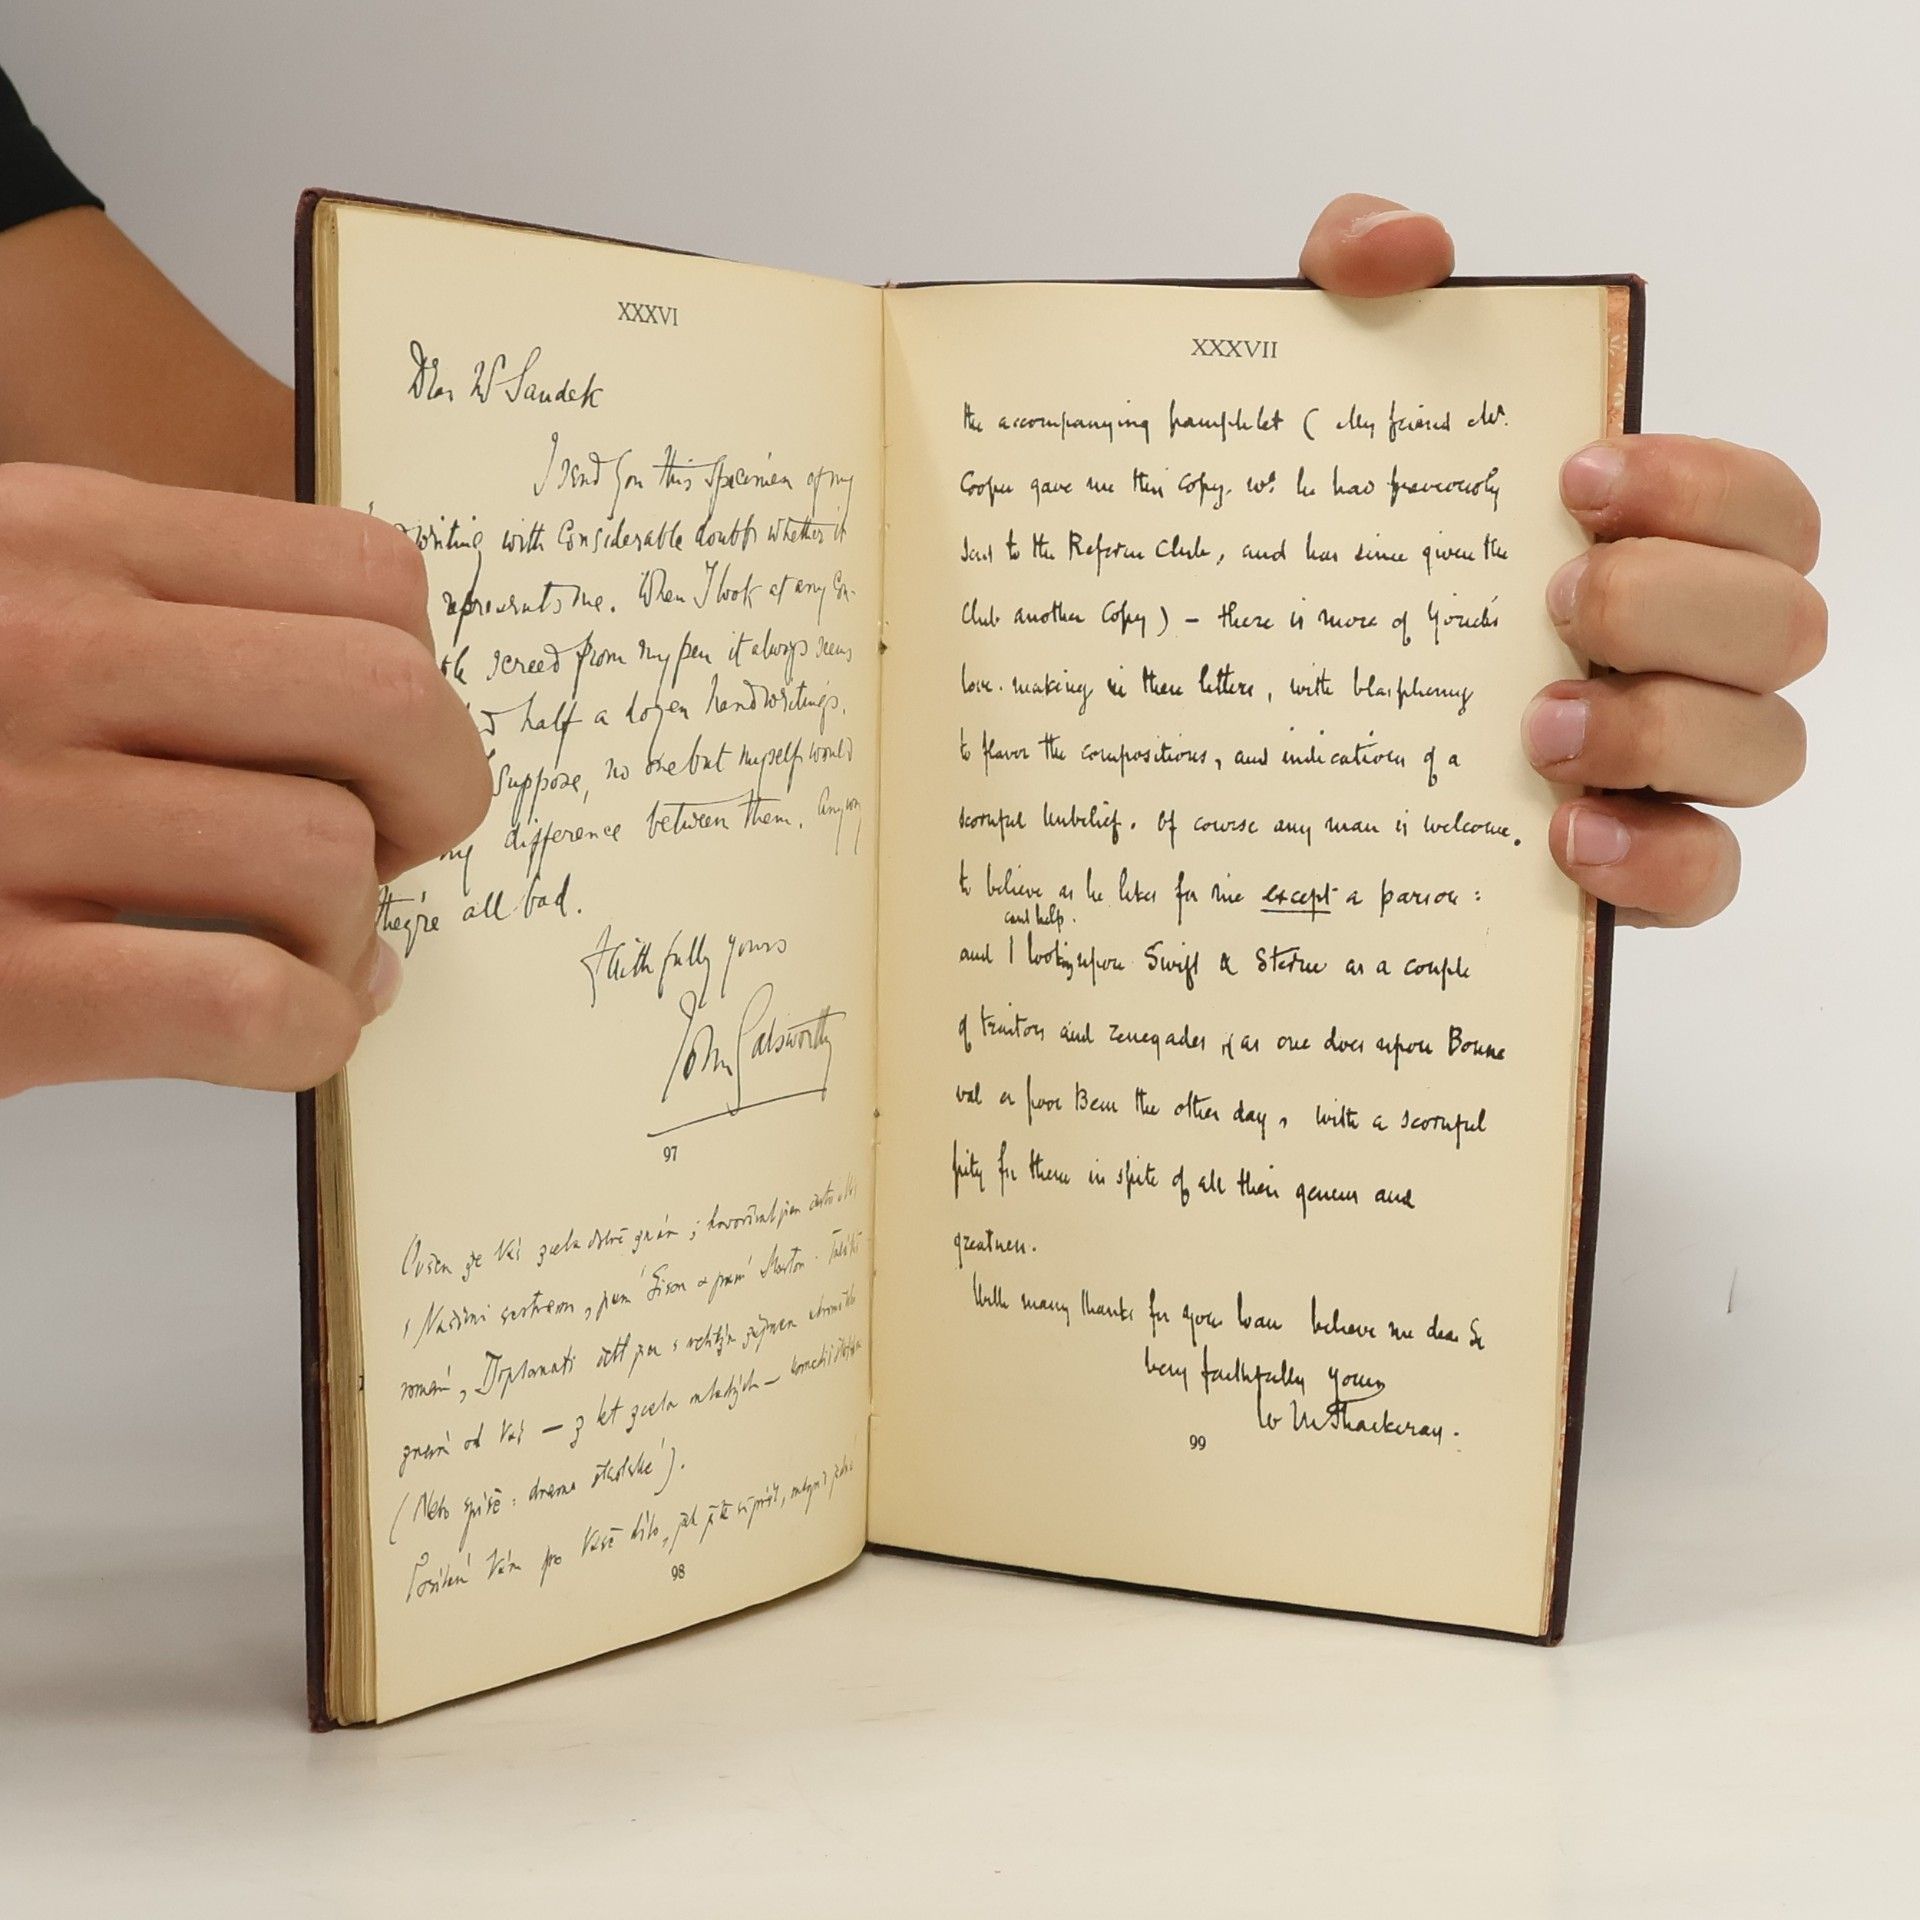 XXXVI
Dear Mr Saudek
I send you this specimen of my
writing with considerable doubts whether it
represents me. When I look at any con-
screed from my pen it always seems
half a dozen handwritings.
suppose, no one but myself would
difference between them. Anyway
they're all bad.
Faithfully yours
John Galsworthy
97
že Vás zcela dobře znám; hovořil jsem často
s Vašimi sestrami, paní a paní
román, Diplomati četl jsem s velkým zájmem
od Vás — z let zcela mladých —
(Nebo spíše: drama).
Vám pro Vaše dílo,
98
XXXVII
the accompanying pamphlet (My friend Mr.
Cooper gave me this copy. wh. he had previously
sent to the Reform Club, and has since given the
Club another copy) — there is more of Yorick's
love-making in these letters, with blasphemy
to flavor the compositions, and indications of a
scornful unbelief. Of course any man is welcome
to believe as he likes for me except a parson:
cant help
and I looking upon Swift & Sterne as a couple
of traitors and renegades as one does upon Bonne
val or poor Bem the other day, with a scornful
pity for them in spite of all their genius and
greatness.
With many thanks for your loan believe me dear Sir
Very faithfully yours
W M Thackeray.
99